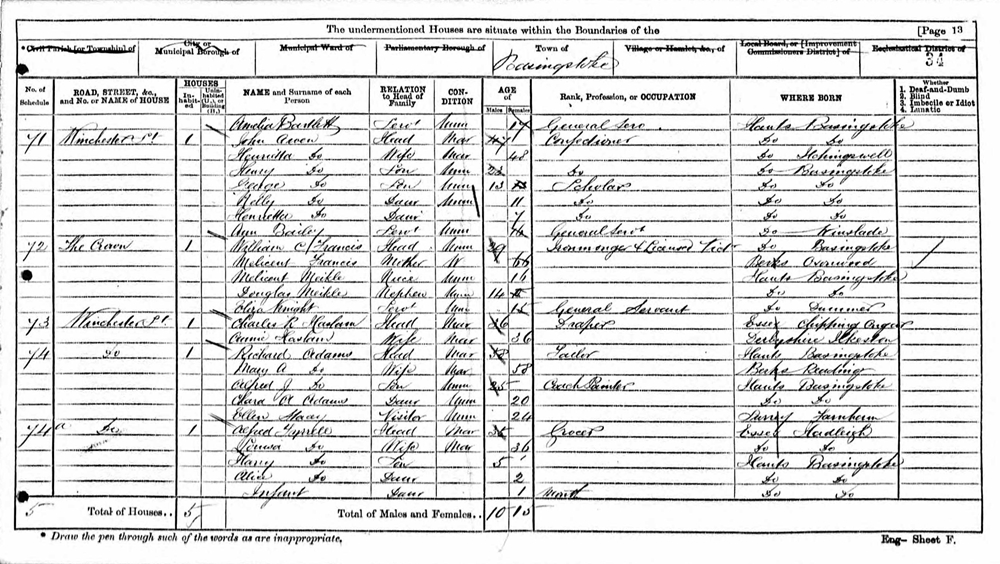 The undermentioned Houses are situate within the Boundaries of the [Page 13
Civil Parish [or Township] of City or Municipal Borough of Municipal Ward of Parliamentary Borough of Town of Basingstoke Village or Hamlet, &c., of Local Board, or [Improvement Commissioners District] of Ecclesiastical District of 34
No. of Schedule ROAD, STREET, &c., and No. or NAME of HOUSE HOUSES Inhabited Uninhabited (U.), or Building (B.) NAME and Surname of each Person RELATION to Head of Family CONDITION AGE of Males Females Rank, Profession, or OCCUPATION WHERE BORN Whether 1. Deaf-and-Dumb 2. Blind 3. Imbecile or Idiot 4. Lunatic
Amelia Bartlett Servt Unm 17 General Serv. Hants Basingstoke
71 Winchester St 1 John Owen Head Mar 47 Confectioner Do Do
Henrietta Do Wife Mar 48 Do Itchingswell
Henry Do Son Unm Do Do Basingstoke
George Do Son Unm 13 Scholar Do Do
Nelly Do Daur Unm 11 Do Do Do
Henrietta Do Daur 7 Do Do Do
Ann Bailey Servt Unm General Servt Do Winslade
72 The Crown 1 William C Francis Head Unm 29 Ironmonger & Licensed Vict Do Basingstoke
Melicent Francis Mother W 66 Berks
Melicent Meikle Niece Unm 16 Hants Basingstoke
Douglas Meikle Nephew Unm 14 Do Do
Eliza Knight Servt Unm 15 General Servant Do Dummer
73 Winchester St 1 Charles R Haslam Head Mar 36 Draper Essex Chipping Ongar
Annie Haslam Wife Mar 36 Derbyshire Ilkeston
74 Do 1 Richard Adams Head Mar 58 Tailor Hants Basingstoke
Mary A Do Wife Mar 58 Berks Reading
Alfred J Do Son Unm 25 Coach Painter Hants Basingstoke
Clara A Adams Daur Unm 20 Do Do
Ellen Visitor Unm 24 Surrey Farnham
74a Do 1 Alfred Tyrrell Head Mar 35 Grocer Essex Hadleigh
Louisa Do Wife Mar 36 Do Do
Harry Do Son 5 Hants Basingstoke
Alice Do Daur 2 Do Do
Infant Daur 1 Month Do Do
5 Total of Houses.. 5 Total of Males and Females.. 10 15
* Draw the pen through such of the words as are inappropriate. Eng- Sheet F.